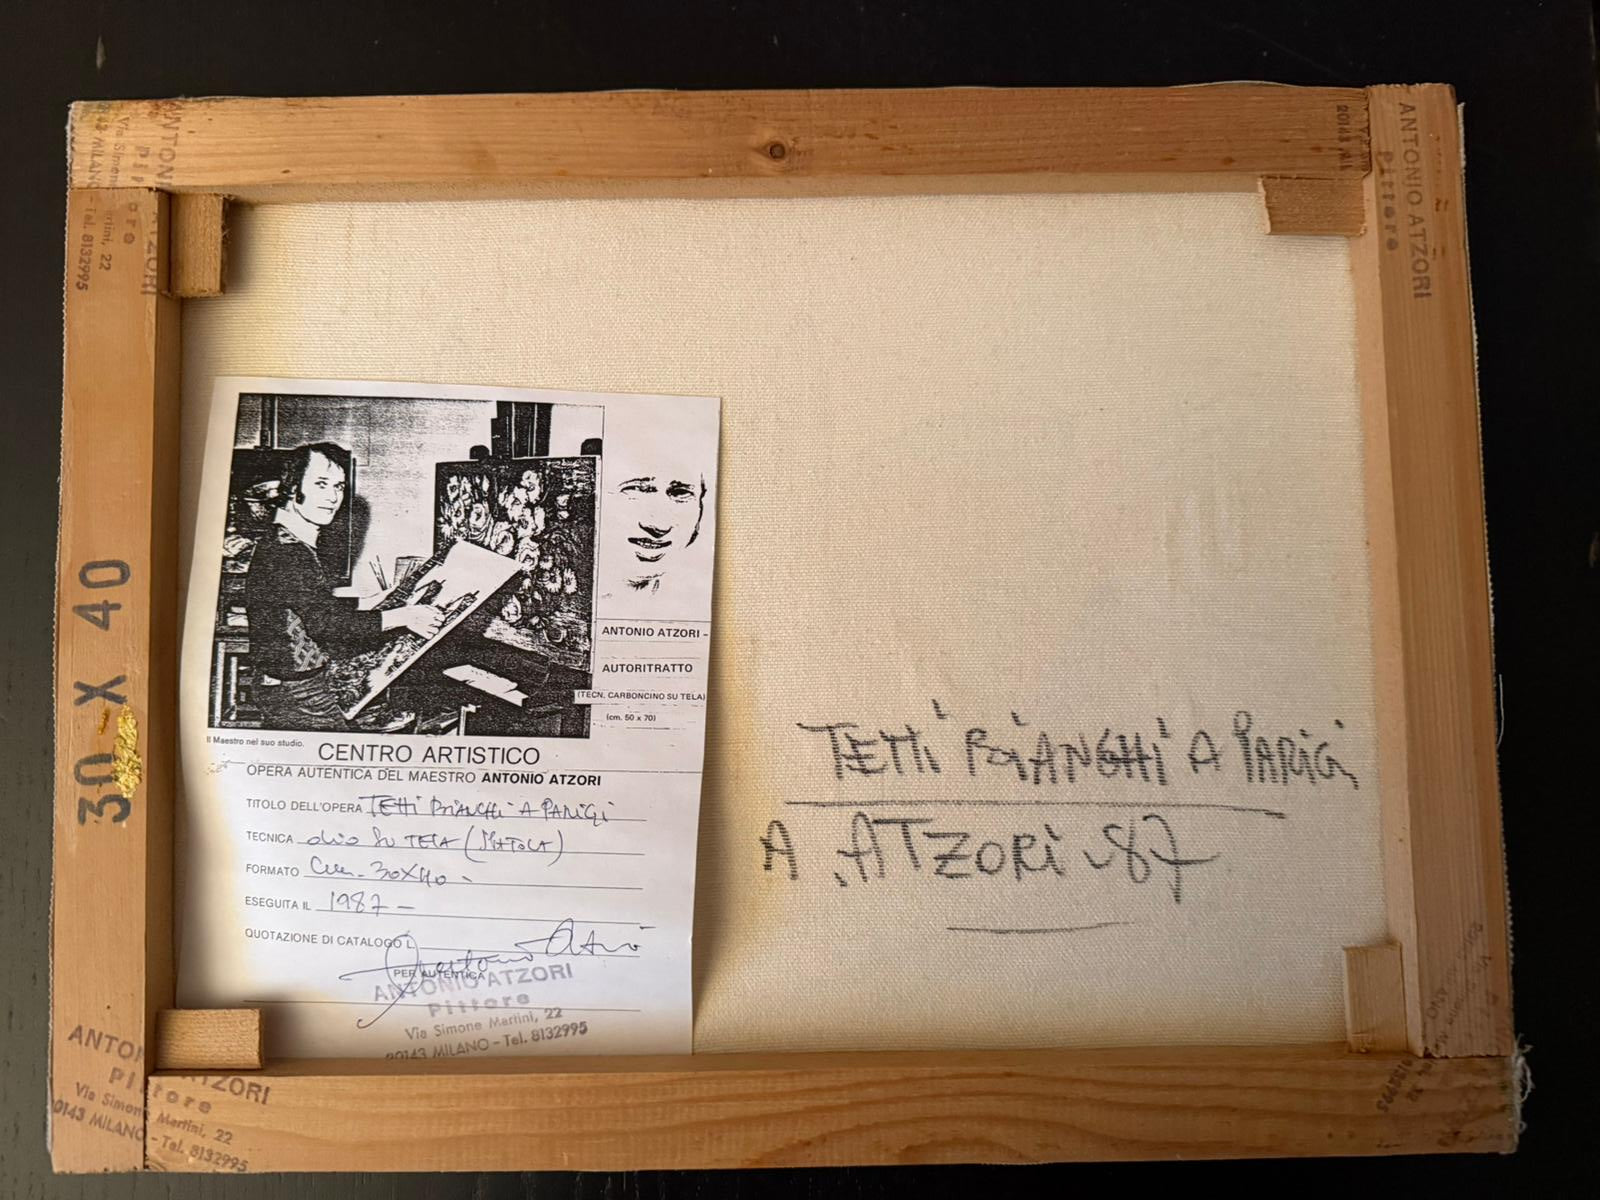 ANTONIO ATZORI
Pittore
20143 MILANO
ANTONIO ATZORI
Pittore
Via Simone Martini, 22
20143 MILANO - Tel. 8132995
30 X 40
ANTONIO ATZORI -
AUTORITRATTO
(TECN. CARBONCINO SU TELA)
(cm. 50 x 70)
Il Maestro nel suo studio.
CENTRO ARTISTICO
OPERA AUTENTICA DEL MAESTRO ANTONIO ATZORI
TITOLO DELL'OPERA TETTI BIANCHI A PARIGI
TECNICA olio SU TELA (SPATOLA)
FORMATO Cm. 30X40 -
ESEGUITA IL 1987 -
QUOTAZIONE DI CATALOGO L.
PER AUTENTICA
ANTONIO ATZORI
Pittore
Via Simone Martini, 22
20143 MILANO - Tel. 8132995
TETTI BIANGHI A PARIGI
A. ATZORI -87
ANTONIO ATZORI
Pittore
Via Simone Martini, 22
20143 MILANO - Tel. 8132995